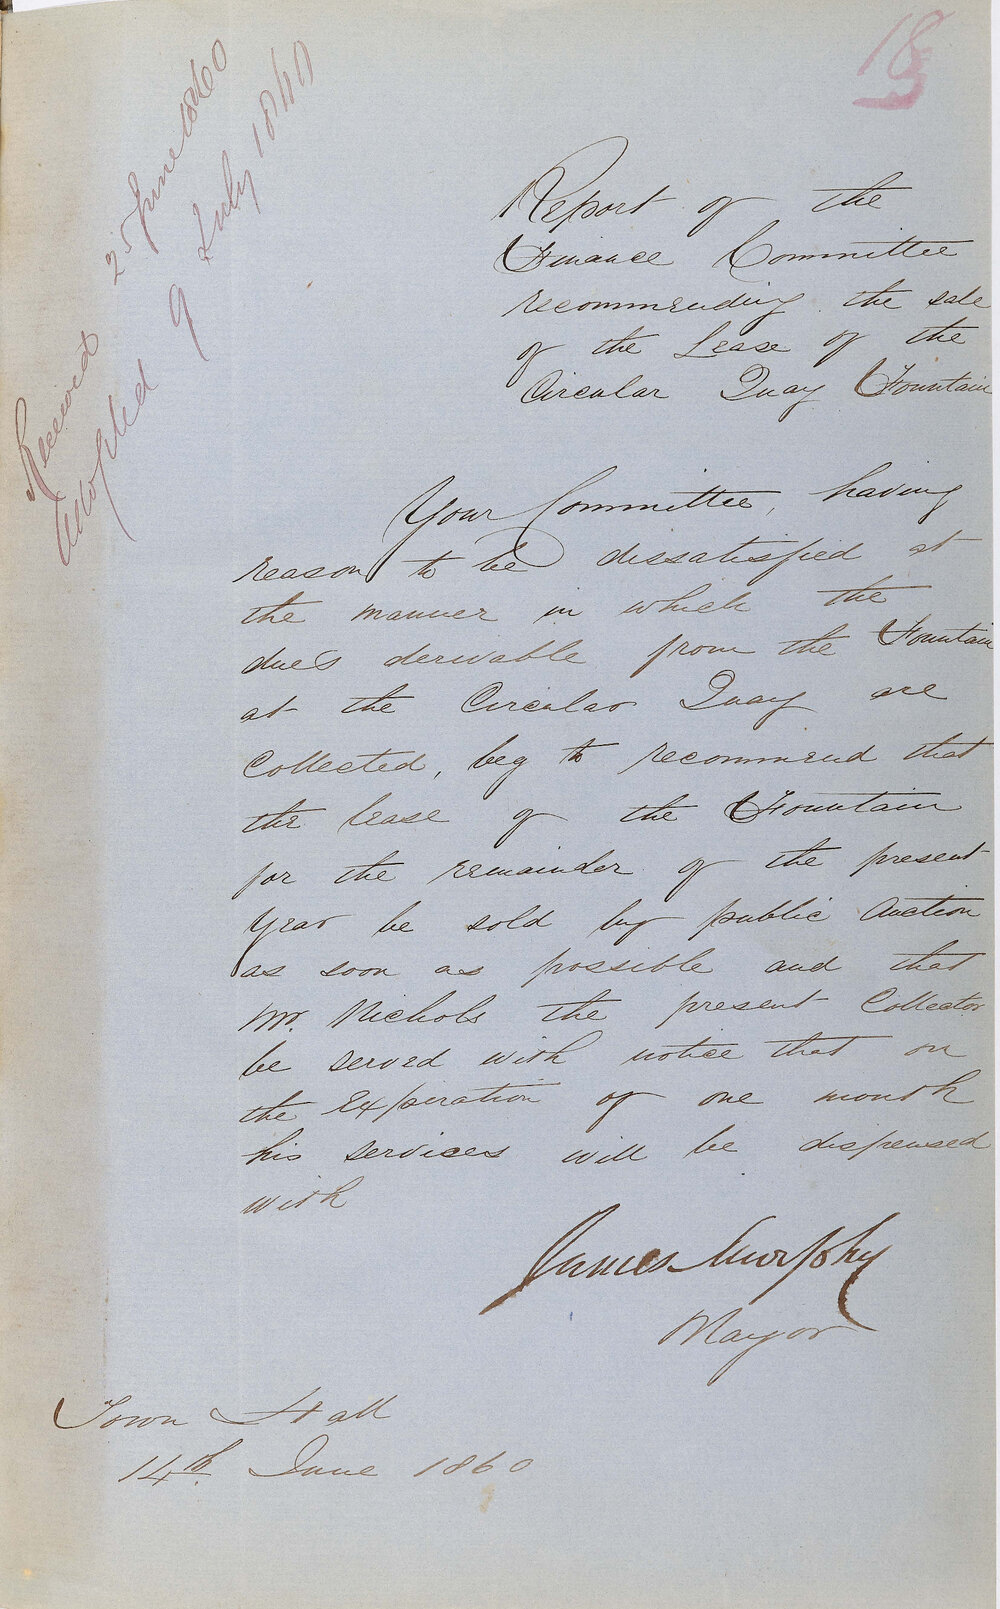 183
Received 25 June 1860
Adopted 9 July 1860
Report of the
Finance Committee
recommending the sale
of the Lease of the
Circular Quay Fountain
Your Committee, having
reason to be dissatisfied at
the manner in which the
dues derivable from the Fountain
at the Circular Quay are
Collected, beg to recommend that
the lease of the Fountain
for the remainder of the present
year be sold by public Auction
as soon as possible and that
Mr. Nichols the present Collector
be served with notice that on
the Expiration of one month
his services will be dispensed
with
James Murphy
Mayor
Town Hall
14th June 1860